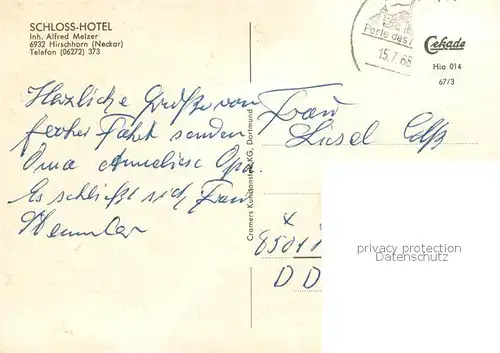 SCHLOSS-HOTEL
Inh. Alfred Melzer
6932 Hirschhorn (Neckar)
Telefon (06272) 373
Perle des
15.7.68
Cekade
Hio 014
67/3
Herzliche Grüße von
froher Fahrt senden
Oma Anneliese Opa.
Es schließt sich Frau
Cramers Kunstanstalt KG, Dortmund
Frau
Liesel
8501
DD
privacy protection
Datenschutz